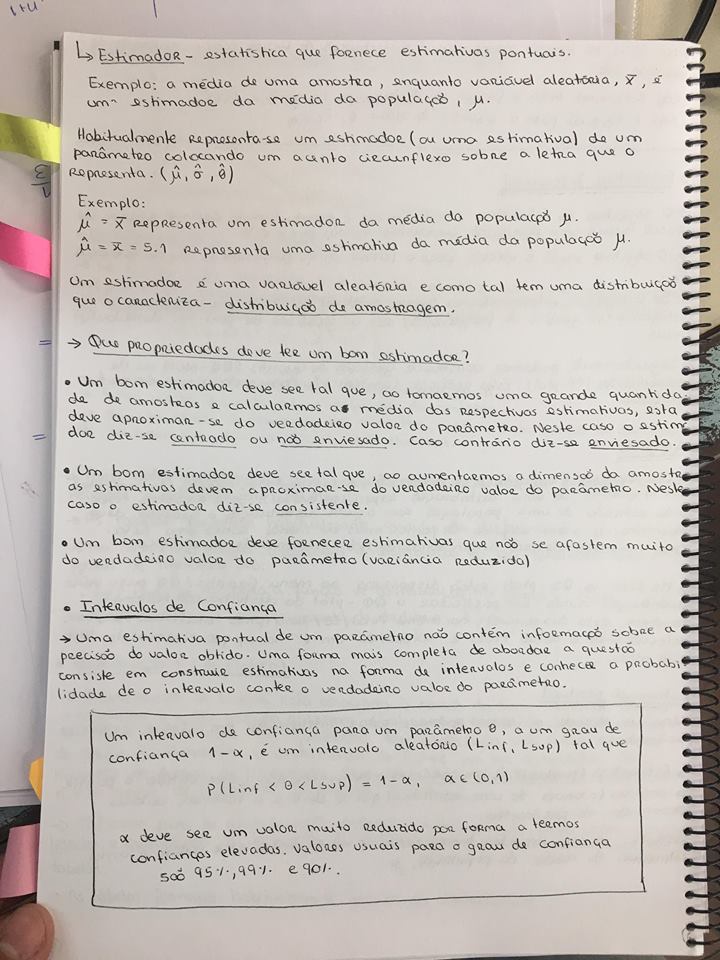 ↳ Estimador - estatística que fornece estimativas pontuais.
Exemplo: a média de uma amostra, enquanto variável aleatória, x̄, é
um estimador da média da população, μ.
Habitualmente representa-se um estimador (ou uma estimativa) de um
parâmetro colocando um acento circunflexo sobre a letra que o
representa. (μ̂, σ̂, θ̂)
Exemplo:
μ̂ = X̄ representa um estimador da média da população μ.
μ̂ = x̄ = 5.1 representa uma estimativa da média da população μ.
Um estimador é uma variável aleatória e como tal tem uma distribuição
que o caracteriza - distribuição de amostragem.
→ Que propriedades deve ter um bom estimador?
• Um bom estimador deve ser tal que, ao tomarmos uma grande quantida
de de amostras e calcularmos as média das respectivas estimativas, esta
deve aproximar-se do verdadeiro valor do parâmetro. Neste caso o estim
dor diz-se centrado ou não enviesado. Caso contrário diz-se enviesado.
• Um bom estimador deve ser tal que, ao aumentarmos a dimensão da amostr
as estimativas devem aproximar-se do verdadeiro valor do parâmetro. Neste
caso o estimador diz-se consistente.
• Um bom estimador deve fornecer estimativas que não se afastem muito
do verdadeiro valor do parâmetro (variância reduzida)
• Intervalos de Confiança
→ Uma estimativa pontual de um parâmetro não contém informação sobre a
precisão do valor obtido. Uma forma mais completa de abordar a questão
consiste em construir estimativas na forma de intervalos e conhecer a probabi
lidade de o intervalo conter o verdadeiro valor do parâmetro.
Um intervalo de confiança para um parâmetro θ, a um grau de
confiança 1-α, é um intervalo aleatório (Linf, Lsup) tal que
P(Linf < θ < Lsup) = 1-α, α ∈ (0,1)
α deve ser um valor muito reduzido por forma a termos
confianças elevadas. Valores usuais para o grau de confiança
são 95%, 99% e 90%.